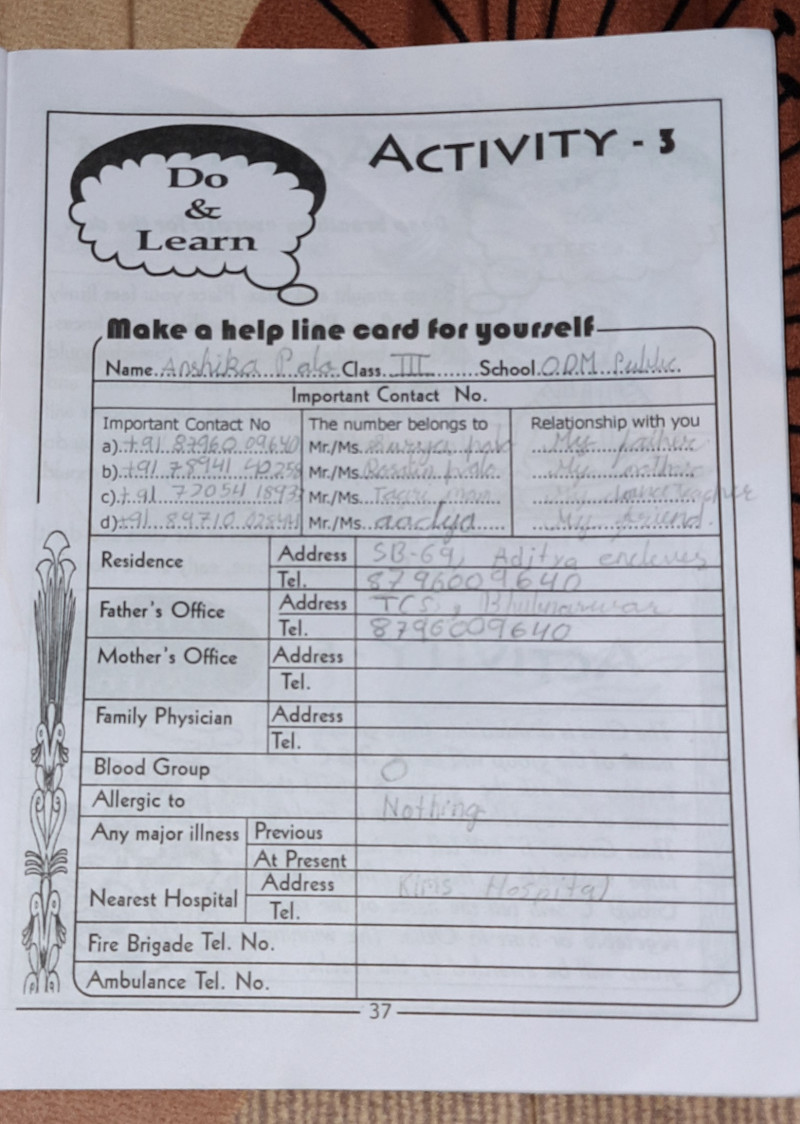 Do
&
Learn
ACTIVITY - 3
Make a help line card for yourself
Name. Anshika Palo Class. III School. O.D.M. Public
Important Contact No.
Important Contact No The number belongs to Relationship with you
a) +91 87960 09640 Mr./Ms. palo My father
b) +91 78941 40258 Mr./Ms. palo My mother
c) +91 77054 18937 Mr./Ms. My dance Teacher
d) +91 89710 Mr./Ms. aadya My friend.
Residence Address SB-69, Aditya enclaves
Tel. 8796009640
Father's Office Address TCS,
Tel. 8796009640
Mother's Office Address
Tel.
Family Physician Address
Tel.
Blood Group O
Allergic to Nothing
Any major illness Previous
At Present
Nearest Hospital Address Kims Hospital
Tel.
Fire Brigade Tel. No.
Ambulance Tel. No.
37